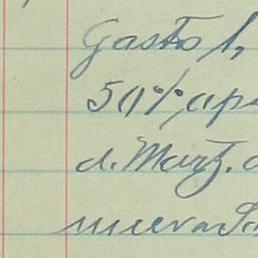 Gasto
50% ap
d. Marz.
nueva